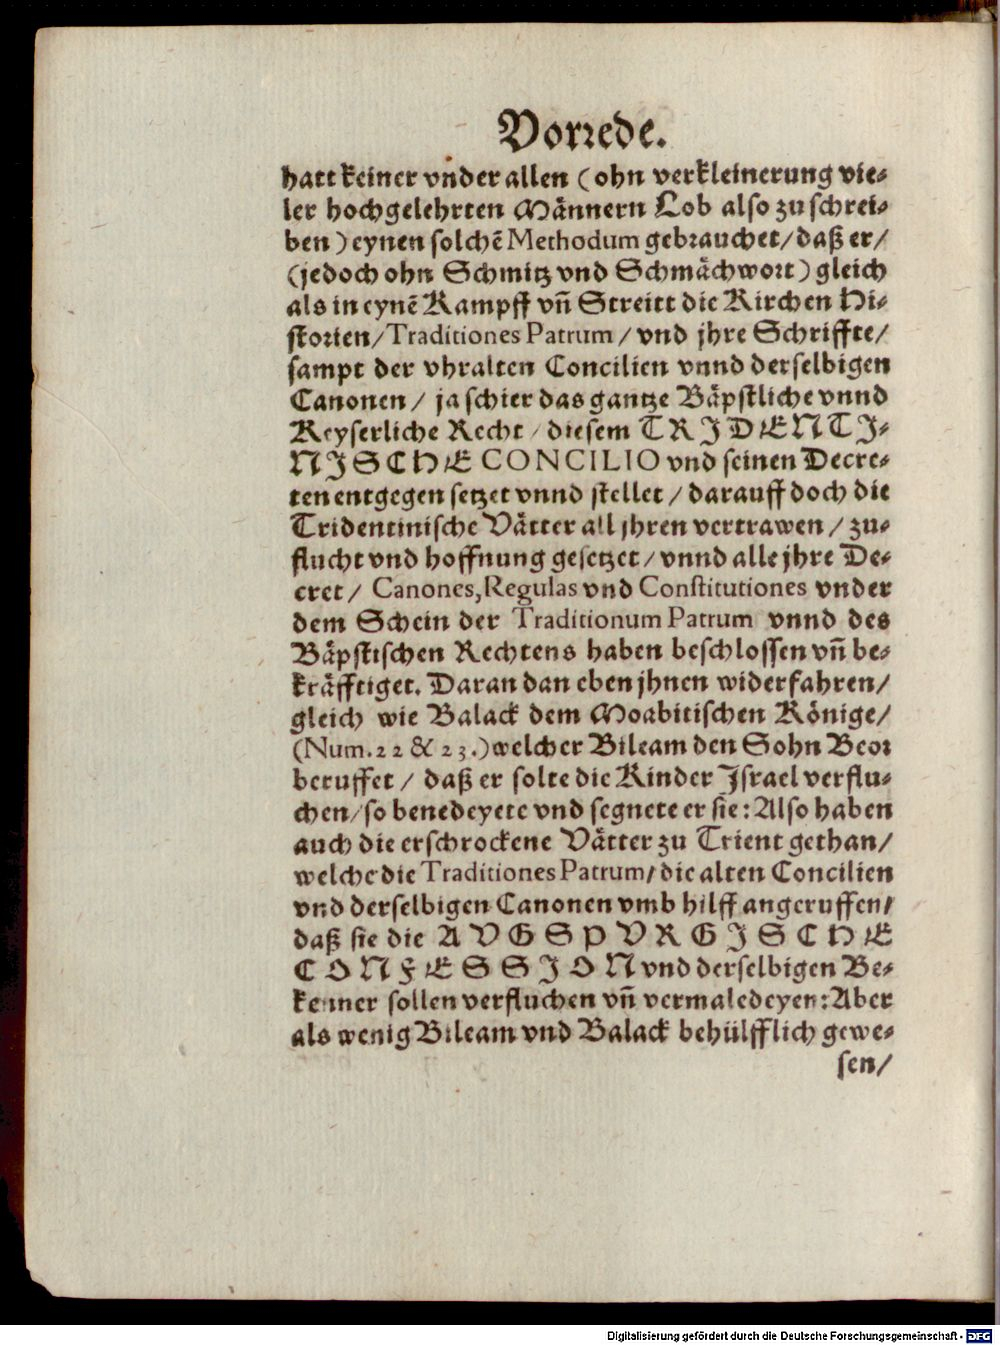 Vorrede.
hatt keiner vnder allen (ohn verkleinerung vie-
ler hochgelehrten Männern Lob also zu schrei-
ben) eynen solchẽ Methodum gebrauchet/ daß er/
(jedoch ohn Schmitz vnd Schmächwort) gleich
als in eynẽ Kampff vn̄ Streitt die Kirchen Hi-
storien/ Traditiones Patrum / vnd jhre Schriffte/
sampt der vhralten Concilien vnnd derselbigen
Canonen / ja schier das gantze Bäpstliche vnnd
Keyserliche Recht / diesem TRIDENTI-
NISCHE CONCILIO vnd seinen Decre-
ten entgegen setzet vnnd stellet / darauff doch die
Tridentinische Vätter all jhren vertrawen / zu-
flucht vnd hoffnung gesetzet/ vnnd alle jhre De-
cret / Canones, Regulas vnd Constitutiones vnder
dem Schein der Traditionum Patrum vnnd des
Bäpstischen Rechtens haben beschlossen vn̄ be-
kräfftiget. Daran dan eben jhnen widerfahren/
gleich wie Balack dem Moabitischen Könige/
(Num. 22 & 23.) welcher Bileam den Sohn Beor
beruffet / daß er solte die Kinder Israel verflu-
chen/ so benedeyete vnd segnete er sie: Also haben
auch die erschrockene Vätter zu Trient gethan/
welche die Traditiones Patrum/ die alten Concilien
vnd derselbigen Canonen vmb hilff angeruffen/
daß sie die AVGSPVRGISCHE
CONFESSION vnd derselbigen Be-
kenner sollen verfluchen vn̄ vermaledeyen: Aber
als wenig Bileam vnd Balack behülfflich gewe-
sen/
Digitalisierung gefördert durch die Deutsche Forschungsgemeinschaft - DFG